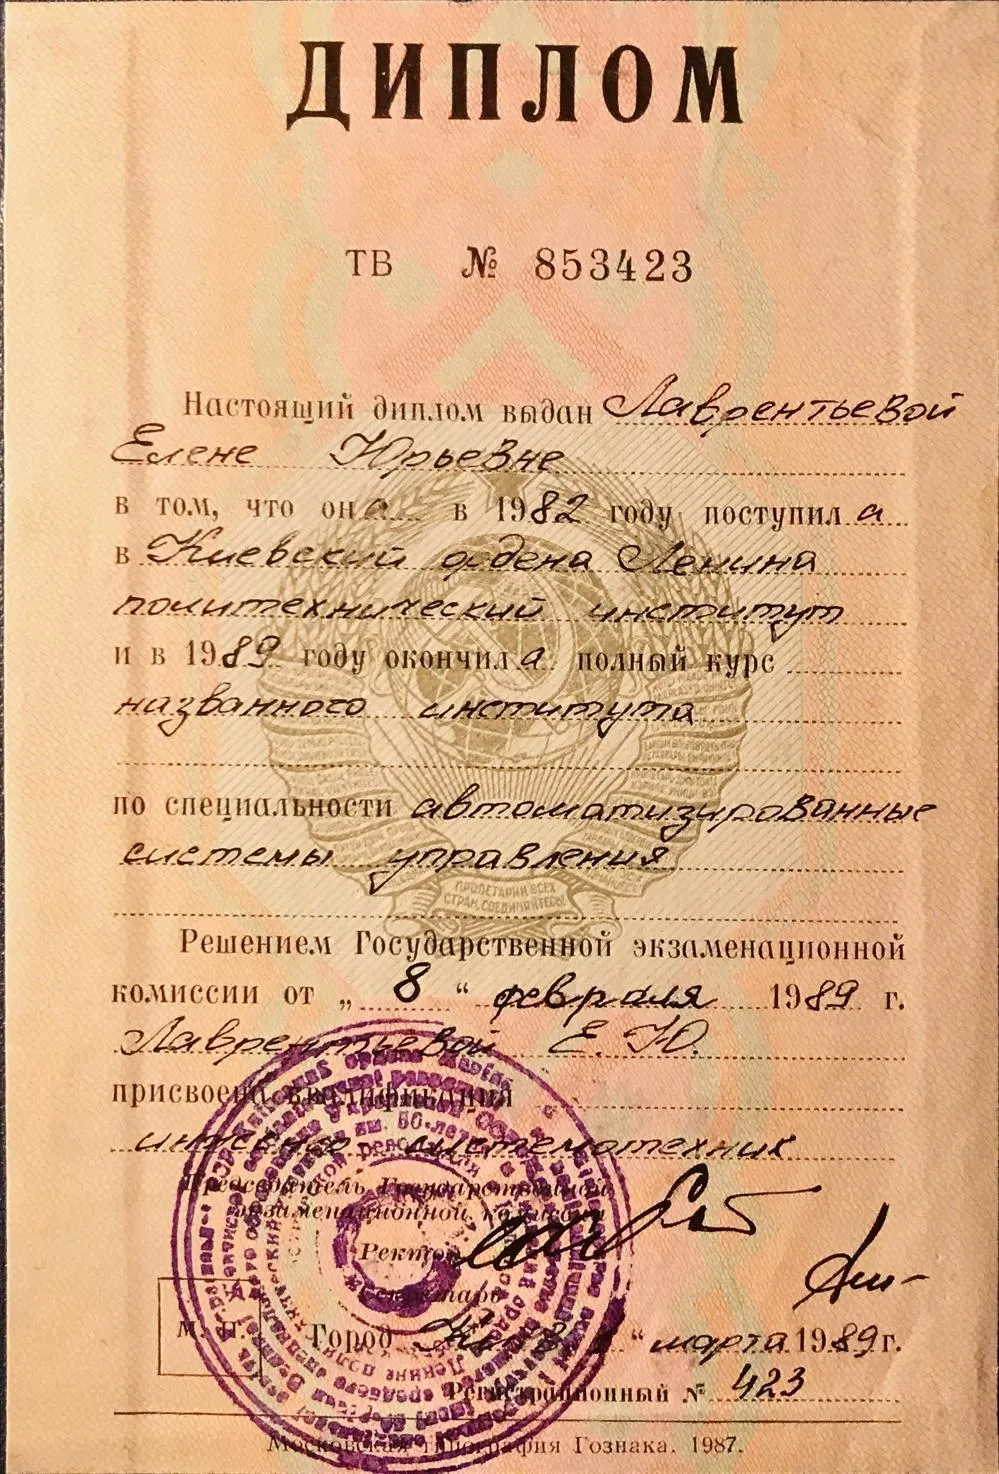 ДИПЛОМ
ТВ № 853423
Настоящий диплом выдан Лаврентьевой
Елене Юрьевне
в том, что она в 1982 году поступила
в Киевский ордена Ленина
политехнический институт
и в 1989 году окончила полный курс
названного института
по специальности автоматизированные
системы управления
ПРОЛЕТАРИИ ВСЕХ
СТРАН, СОЕДИНЯЙТЕСЬ!
Решением Государственной экзаменационной
комиссии от „ 8 “ февраля 1989 г.
Лаврентьевой Е. Ю.
присвоена квалификация
инженер системотехник
Председатель Государственной
экзаменационной комиссии
Ректор
Секретарь
М. П.
Город Киев “ марта 1989г.
Регистрационный № 423
Московская типография Гознака. 1987.